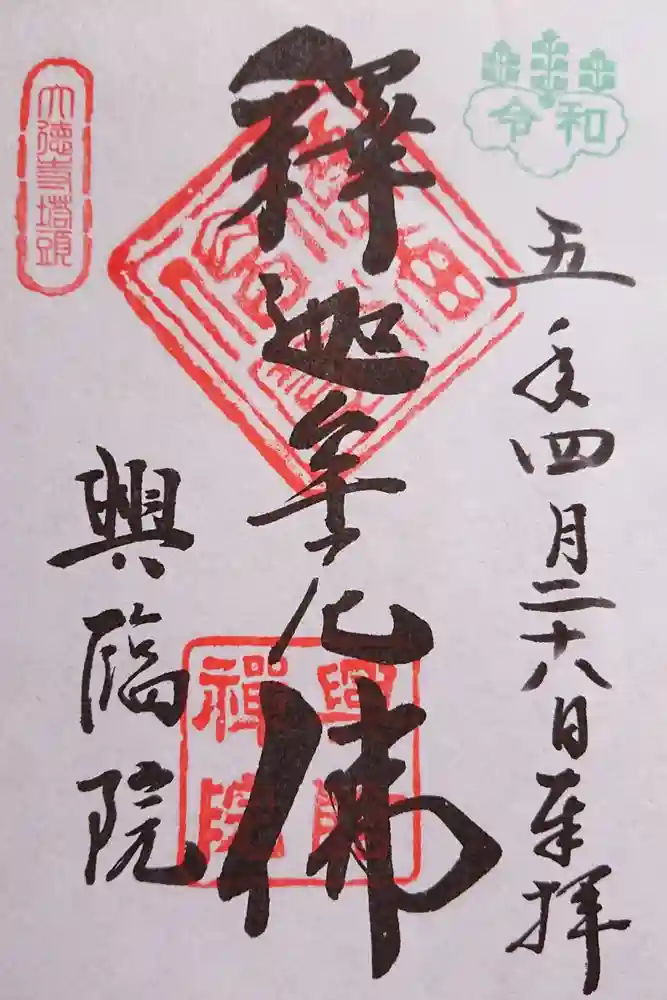 令和
五年四月二十八日奉拝
釋迦牟尼佛
興臨院
大徳寺塔頭
興臨禅院